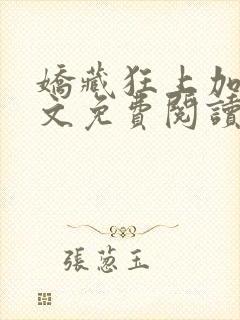 嬌藏狂上加
文免費閱讀
張蔥玉